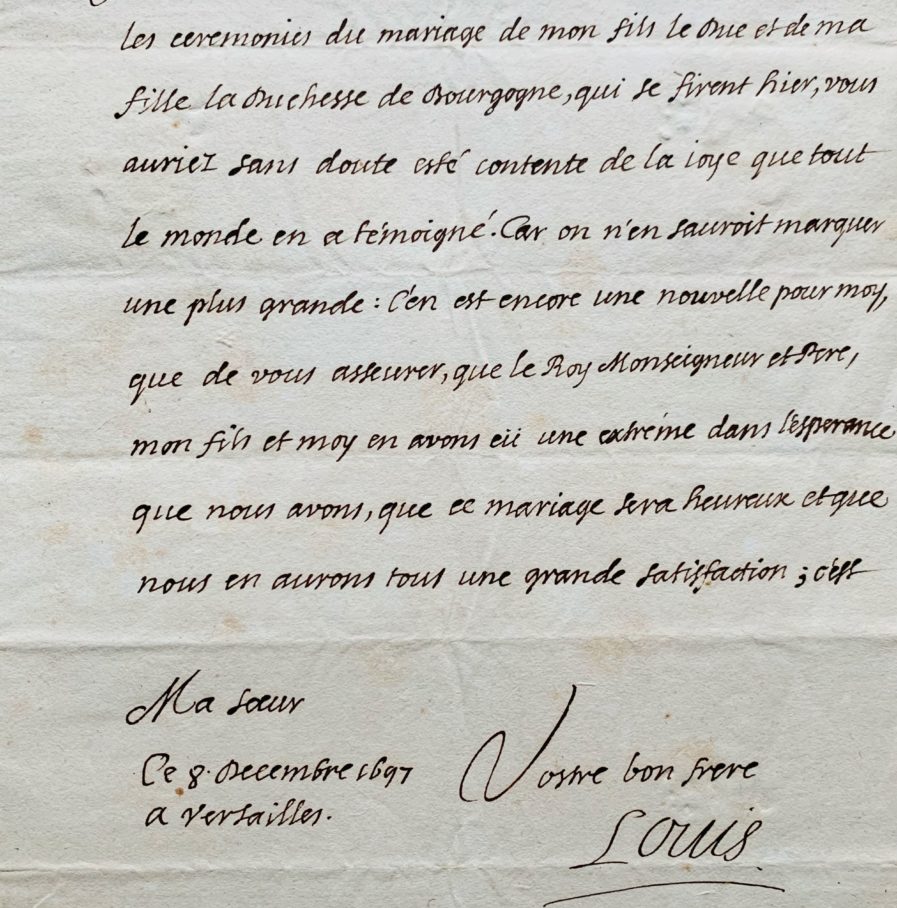 les ceremonies du mariage de mon fils le Duc et de ma
fille la Duchesse de Bourgogne, qui se firent hier, vous
auriez sans doute esté contente de la ioye que tout
le monde en a témoigné. Car on n'en sauroit marquer
une plus grande : C'en est encore une nouvelle pour moy,
que de vous asseurer, que le Roy Monseigneur et Pere,
mon fils et moy en avons eü une extréme dans l'esperance
que nous avons, que ce mariage sera heureux et que
nous en aurons tous une grande satisfaction ; c'est
Ma sœur
Ce 8. Decembre 1697
a Versailles.
Vostre bon frere
Louis